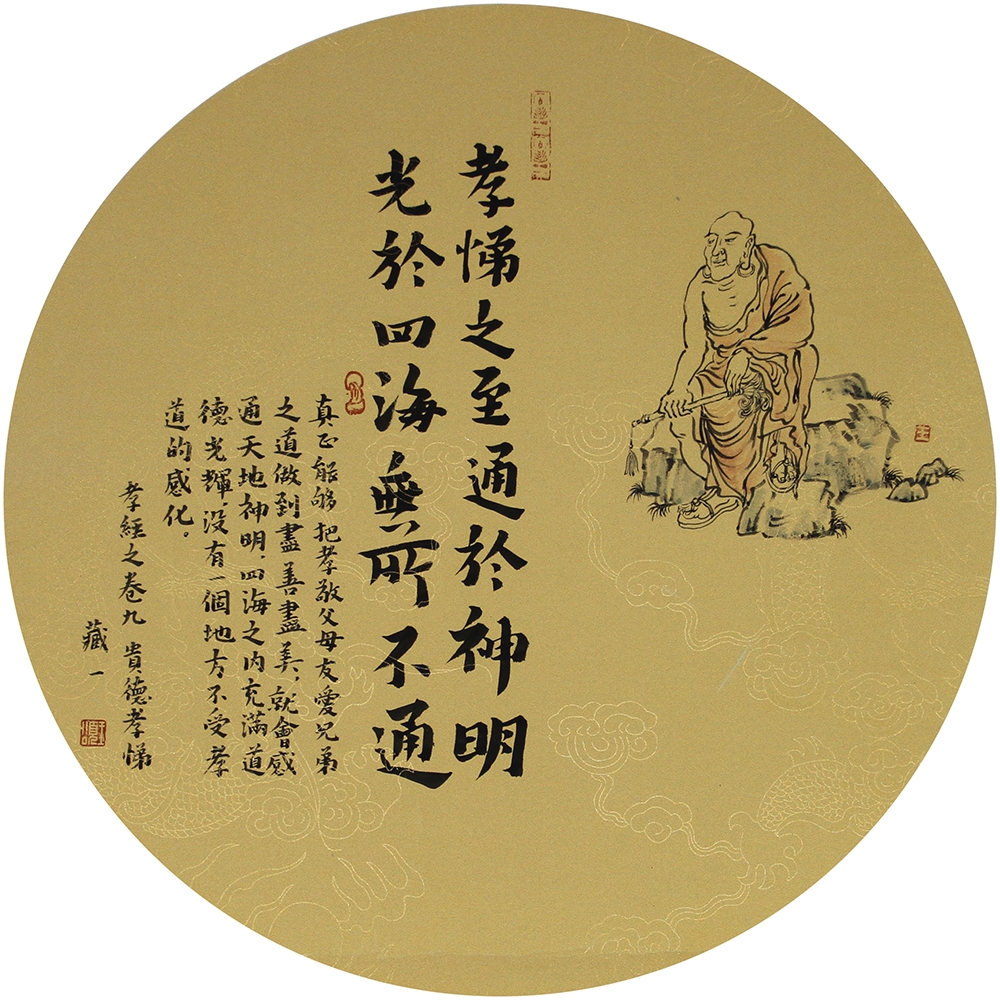 孝悌之至通於神明
光於四海無所不通
真正能够把孝敬父母友愛兄弟
之道做到盡善盡美，就會感
通天地神明，四海之内充滿道
德光輝，没有一個地方不受孝
道的感化。
孝經之卷九 貴德孝悌
藏一